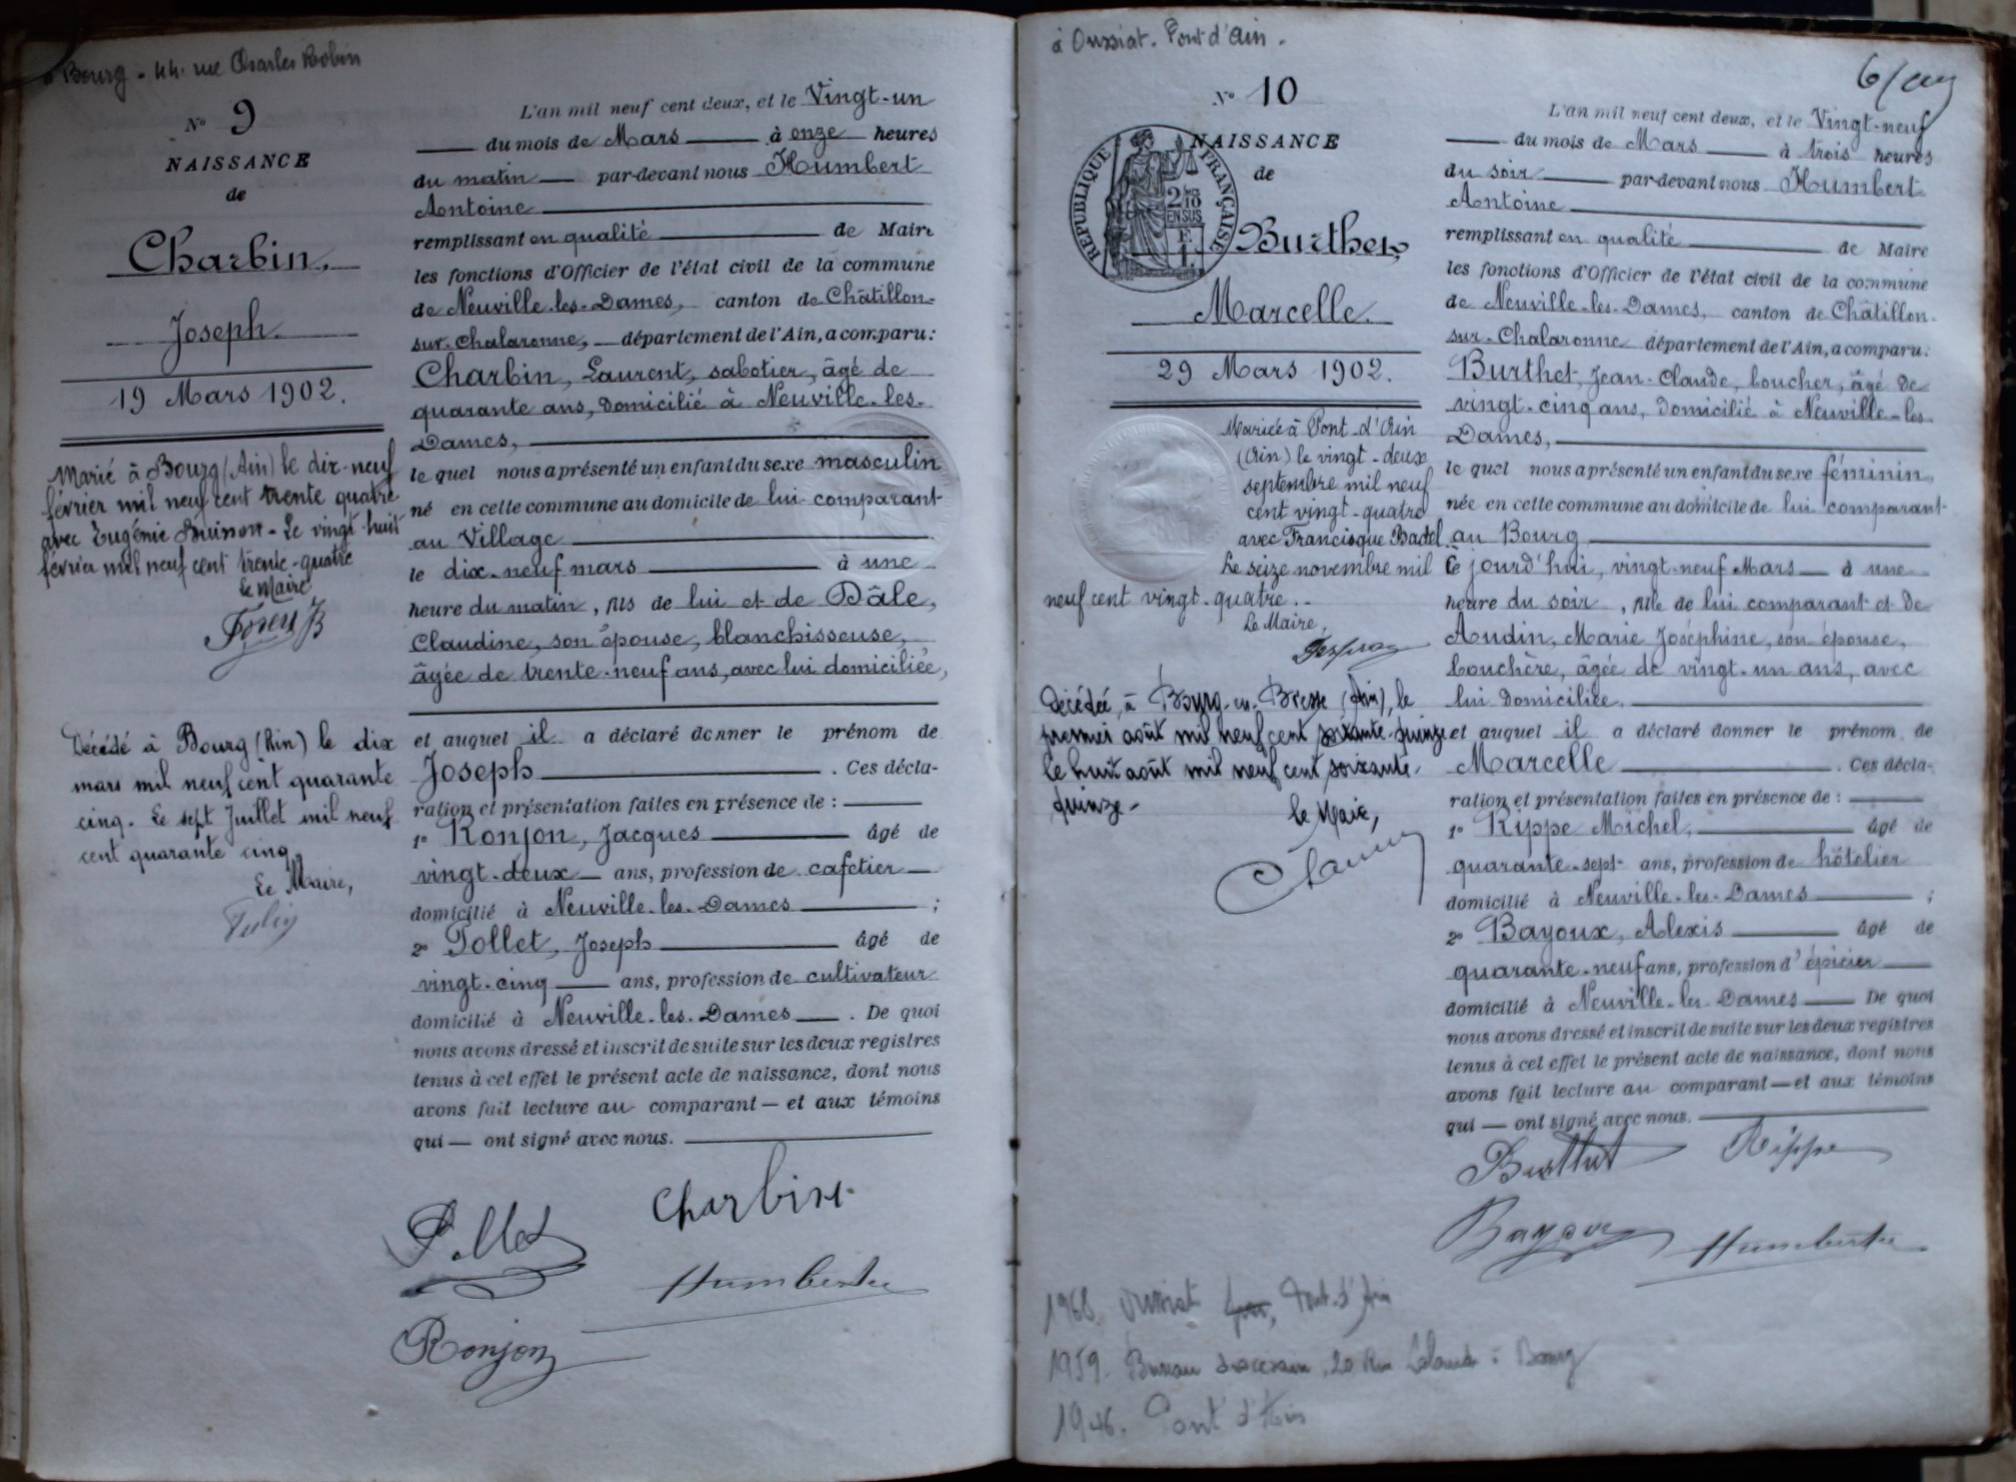 à Bourg - 44 rue Charles Robin
N° 9
NAISSANCE
de
Charbin,
Joseph.
19 Mars 1902.
Marié à Bourg (Ain) le dix-neuf
février mil neuf cent trente quatre
avec Eugénie Buisson - Le vingt-huit
février mil neuf cent trente-quatre
Le Maire,
Décédé à Bourg (Ain) le dix
mars mil neuf cent quarante
cinq. Le sept Juillet mil neuf
cent quarante cinq
Le Maire,
L'an mil neuf cent deux, et le Vingt-un
du mois de Mars à onze heures
du matin par-devant nous Humbert
Antoine
remplissant en qualité de Maire
les fonctions d'Officier de l'état civil de la commune
de Neuville-les-Dames, canton de Châtillon-
sur-Chalaronne, département de l'Ain, a comparu :
Charbin, Laurent, sabotier, âgé de
quarante ans, domicilié à Neuville-les-
Dames,
le quel nous a présenté un enfant du sexe masculin
né en cette commune au domicile de lui comparant
au Village
le dix-neuf mars à une
heure du matin, fils de lui et de Dâle,
Claudine, son épouse, blanchisseuse,
âgée de trente-neuf ans, avec lui domiciliée,
et auquel il a déclaré donner le prénom de
Joseph . Ces décla-
ration et présentation faites en présence de :
1° Ronjon, Jacques âgé de
vingt-deux ans, profession de cafetier
domicilié à Neuville-les-Dames ;
2° Pollet, Joseph âgé de
vingt-cinq ans, profession de cultivateur
domicilié à Neuville-les-Dames . De quoi
nous avons dressé et inscrit de suite sur les deux registres
tenus à cet effet le présent acte de naissance, dont nous
avons fait lecture au comparant — et aux témoins
qui — ont signé avec nous.
Pollet Charbin
Humbert
Ronjon
à Oussiat. Pont d'Ain.
N° 10
NAISSANCE
de
RÉPUBLIQUE FRANÇAISE
Burthet,
Marcelle.
29 Mars 1902.
Mariée à Pont-d'Ain
(Ain) le vingt-deux
septembre mil neuf
cent vingt-quatre
avec Francisque Badel
Le seize novembre mil
neuf cent vingt-quatre.
Le Maire,
Décédée, à Bourg-en-Bresse (Ain), le
premier août mil neuf cent soixante-quinze
le huit août mil neuf cent soixante-
quinze-
le Maire,
6/
L'an mil neuf cent deux, et le Vingt-neuf
du mois de Mars à trois heures
du soir par-devant nous Humbert
Antoine
remplissant en qualité de Maire
les fonctions d'Officier de l'état civil de la commune
de Neuville-les-Dames, canton de Châtillon-
sur-Chalaronne département de l'Ain, a comparu :
Burthet, Jean-Claude, boucher, âgé de
vingt-cinq ans, domicilié à Neuville-les-
Dames,
le quel nous a présenté un enfant du sexe féminin,
née en cette commune au domicile de lui comparant
au Bourg
Ce jourd'hui, vingt-neuf Mars à une
heure du soir, fille de lui comparant et de
Audin, Marie Joséphine, son épouse,
bouchère, âgée de vingt-un ans, avec
lui domiciliée.
et auquel il a déclaré donner le prénom de
Marcelle . Ces décla-
ration et présentation faites en présence de :
1° Rippe Michel, âgé de
quarante-sept ans, profession de hôtelier
domicilié à Neuville-les-Dames ;
2° Bayoux, Alexis âgé de
quarante-neuf ans, profession d'épicier
domicilié à Neuville-les-Dames De quoi
nous avons dressé et inscrit de suite sur les deux registres
tenus à cet effet le présent acte de naissance, dont nous
avons fait lecture au comparant — et aux témoins
qui — ont signé avec nous.
Burthet Rippe
Bayoux Humbert
1968. Oussiat Pont-d'Ain
1959. Bureau diocésain, 20 Rue Lalande à Bourg
1946. Pont d'Ain